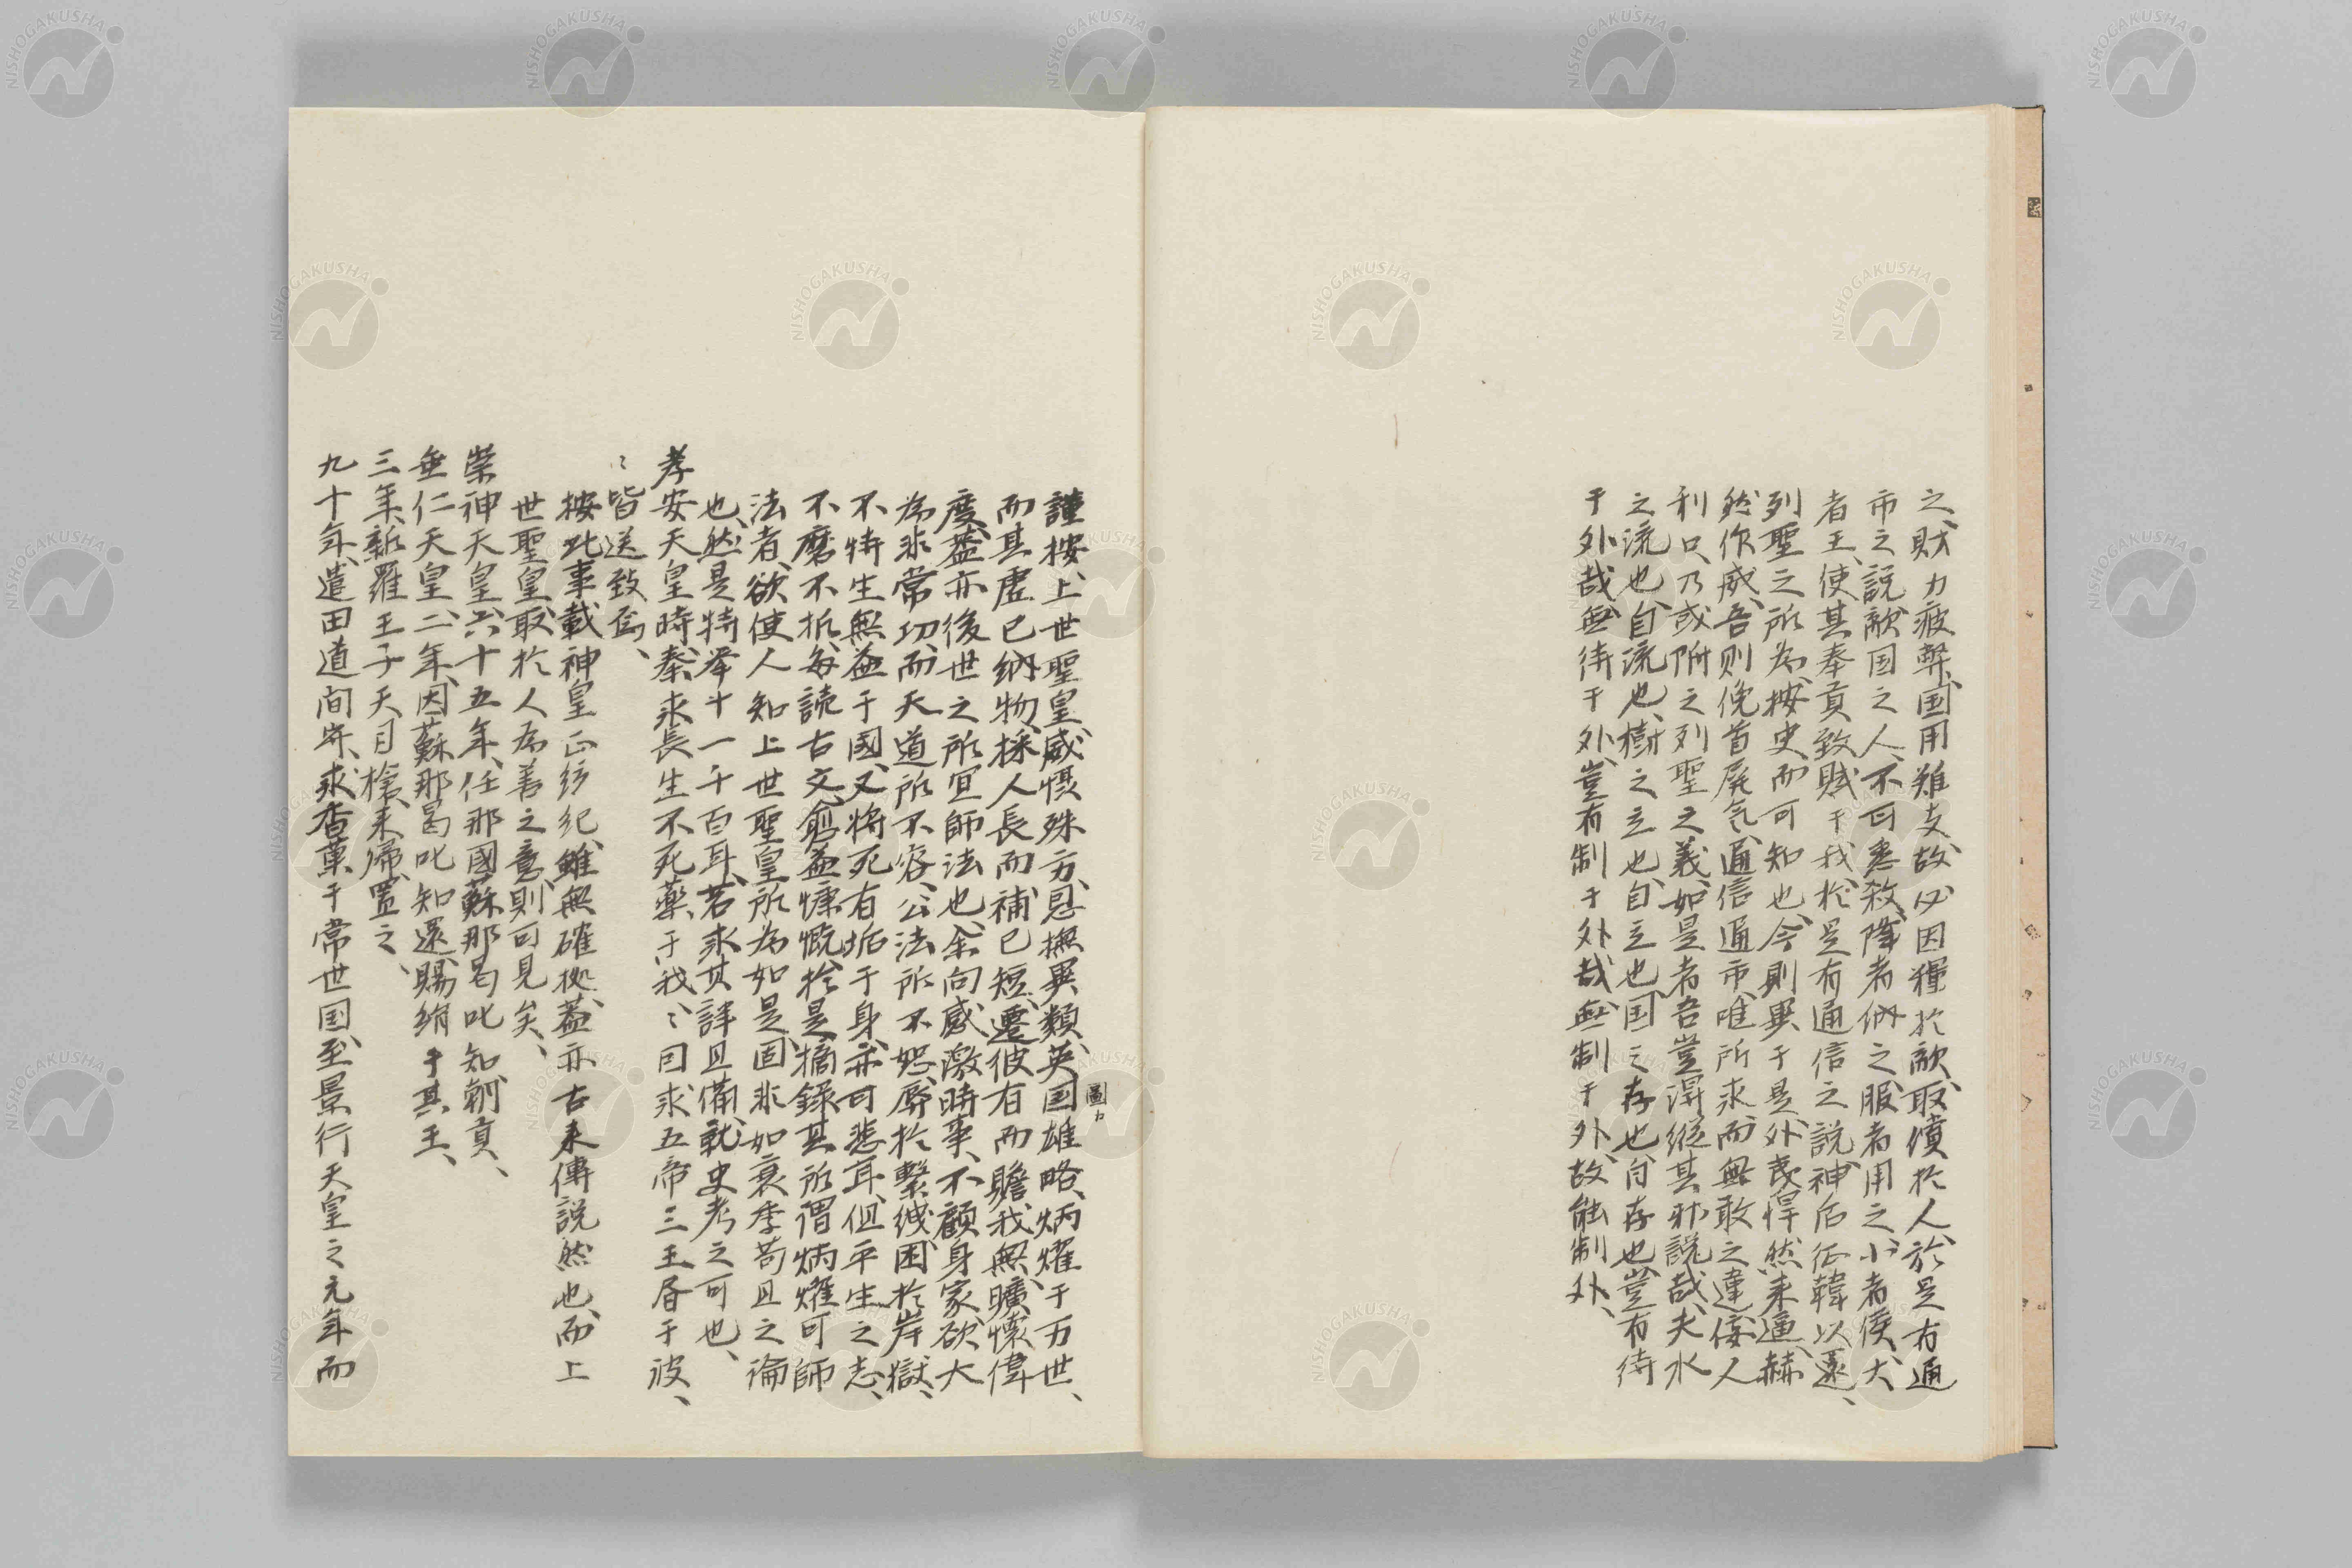 之、財力疲弊、国用難支、故必因糧於敵、取償於人、於是有通
市之説、敵国之人、不可悉殺、降者納之、服者用之、小者侯、大
者王、使其奉貢致賦于我、於是有通信之説、神后征韓以還、
列聖之所為、按史而可知也、今則異于是、外夷悍然来逼、赫
然作威、吾則俛首屏気、通信通市、唯所求而無敢之違、侫人
利口、乃或附之列聖之義、如是者吾豈得縦其邪説哉、夫水
之流也、自流也、樹之立也、自立也、国之存也、自存也、豈有待
于外哉、無待于外、豈有制于外哉、無制于外、故能制外、
謹按、上世聖皇、威愢殊方、恩撫異類、英国雄略、炳燿于万世、
圖カ
而其虚已納物、採人長而補已短、遷彼有而贍我無、曠懐偉
度、蓋亦後世之所宜師法也、余向感激時事、不顧身家、欲大
為非常功、而天道所不容、公法所不恕、辱於繋紲、困於岸獄、
不特生無益于國、又将死有垢于身、亦可悲耳、但平生之志、
不磨不折、毎読古文、愈益慷慨、於是摘録其所謂炳燿可師
法者、欲使人知上世聖皇所為如是、固非如衰季苟且之論
也、然是特挙十一千百耳、若求其詳且備、就史考之可也、
孝安天皇時、秦求長生不死薬于我、ミ因求五帝三王書于彼、
ミ皆送致焉、
按此事載神皇正統紀、雖無確拠、蓋亦古来傳説然也、而上
世聖皇、取於人為善之意、則可見矣、
崇神天皇、六十五年、任那國蘇那曷叱知朝貢、
垂仁天皇、二年、因蘇那曷叱知還、賜絹于其王、
三年、新羅王子天日槍来帰、置之、
九十年、遣田道間守、求香菓于常世国、至景行天皇之元年而
NISHOGAKUSHA